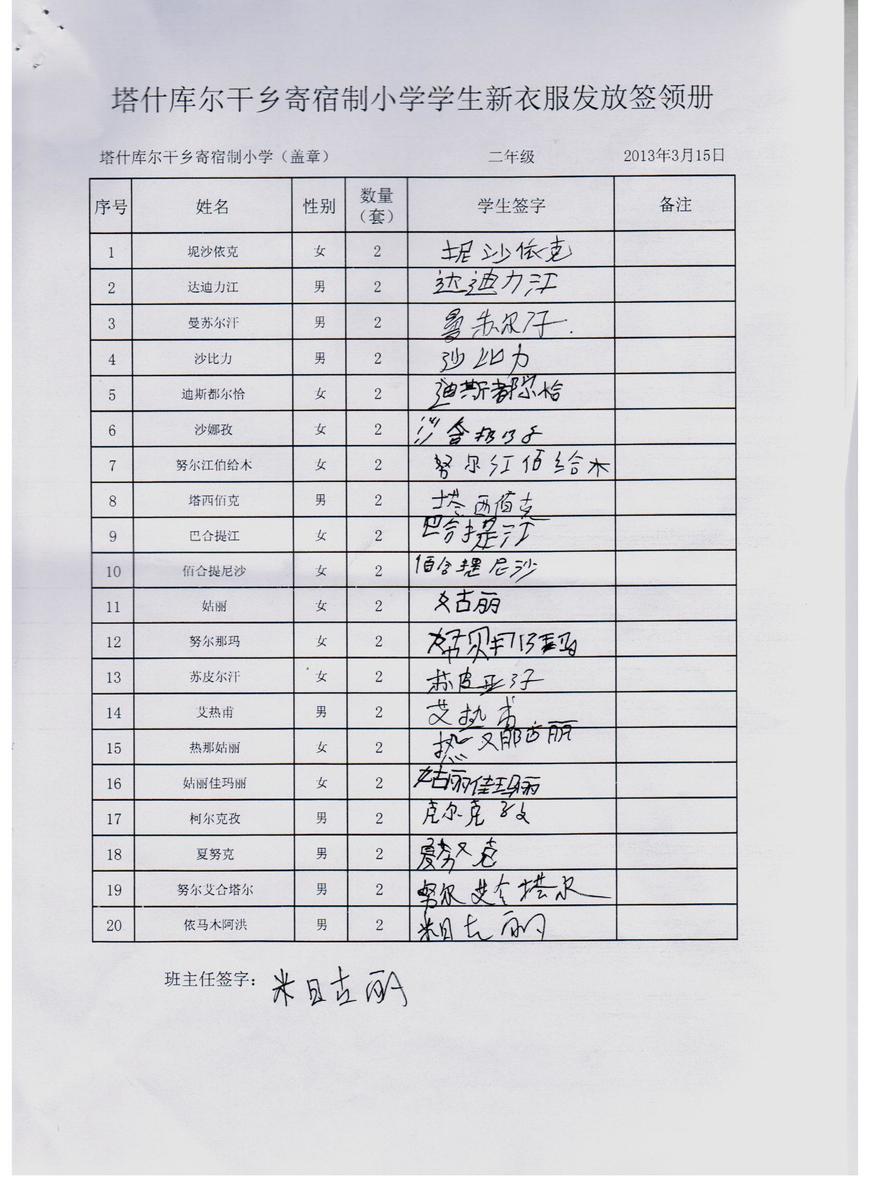 塔什库尔干乡寄宿制小学学生新衣服发放签领册
塔什库尔干乡寄宿制小学（盖章） 二年级 2013年3月15日
序号 姓名 性别 数量（套） 学生签字 备注
1 坭沙依克 女 2 坭沙依克
2 达迪力江 男 2 达迪力江
3 曼苏尔汗 男 2 曼苏尔汗
4 沙比力 男 2 沙比力
5 迪斯都尔恰 女 2 迪斯都尔恰
6 沙娜孜 女 2
7 努尔江伯给木 女 2 努尔江佰给木
8 塔西佰克 男 2 塔西佰克
9 巴合提江 女 2 巴合提江
10 佰合提尼沙 女 2 佰合提尼沙
11 姑丽 女 2 姑丽
12 努尔那玛 女 2
13 苏皮尔汗 女 2
14 艾热甫 男 2 艾热甫
15 热那姑丽 女 2
16 姑丽佳玛丽 女 2 姑丽佳玛丽
17 柯尔克孜 男 2 克尔克孜
18 夏努克 男 2 夏努克
19 努尔艾合塔尔 男 2 努尔艾合塔尔
20 依马木阿洪 男 2 米日古丽
班主任签字：米日古丽